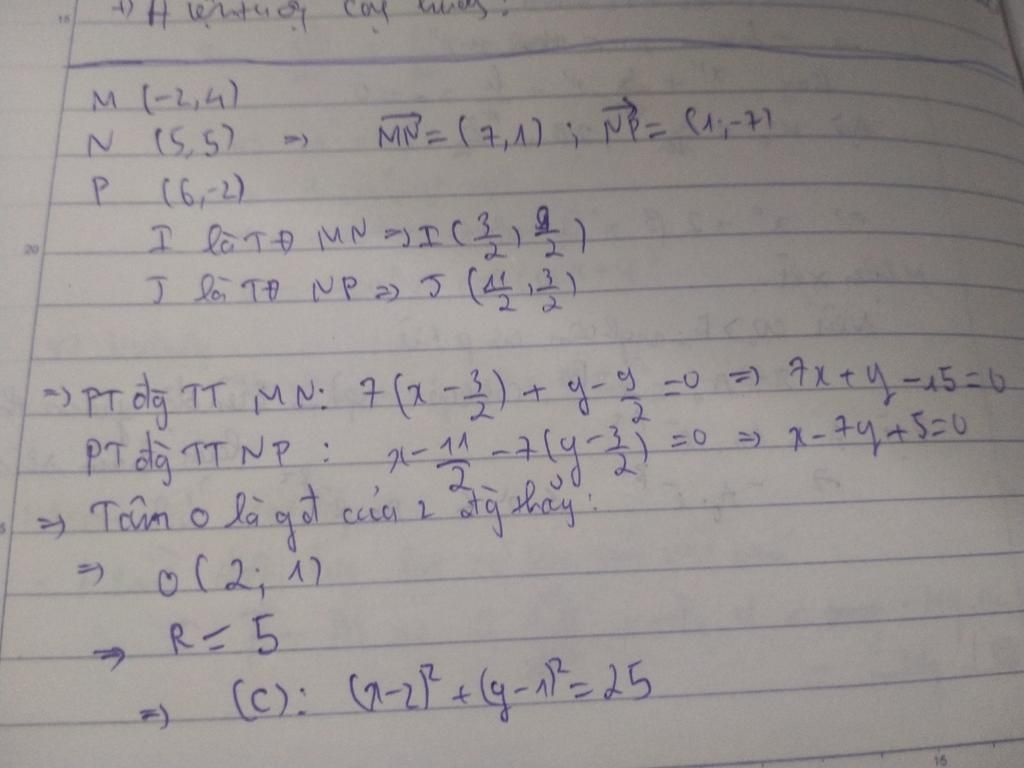 M (-2,4)
N (5,5) => MN = (7,1) ; NP = (1;-7)
P (6,-2)
I là TĐ MN => I (3/2, 9/2)
J là TĐ NP => J (11/2, 3/2)
=> PT đg TT MN: 7(x - 3/2) + y - 9/2 = 0 => 7x + y - 15 = 0
PT đg TT NP : x - 11/2 - 7(y - 3/2) = 0 => x - 7y + 5 = 0
=> Tâm O là gđ của 2 đg thẳng:
=> O (2; 1)
=> R = 5
=> (C): (x-2)² + (y-1)² = 25
15